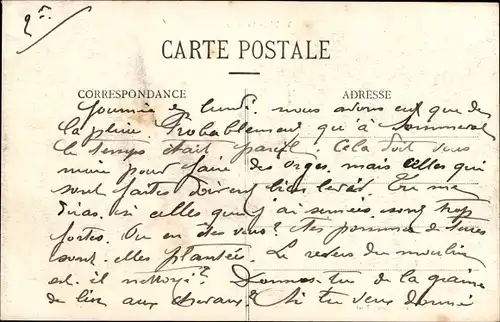 2e
CARTE POSTALE
CORRESPONDANCE ADRESSE
Journée de lundi. nous avons eu que de
la pluie. Probablement qu'à Sommeval
le temps était pareil. Cela doit vous
pour faire des orges, mais celles qui
sont faites doivent bien lever. Tu me
diras si celles que j'ai semées sont trop
fortes. Ou en des pommes de terres
sont elles plantée. Le du moulin
est-il nettoyé? Donnes-tu de la graine
de lin aux chevaux? Si tu veux